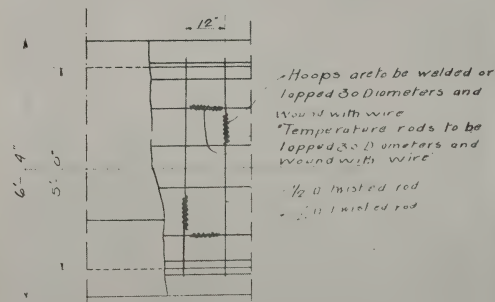 12"
Hoops are to be welded or
lapped 30 Diameters and
wound with wire
Temperature rods to be
lapped 30 Diameters and
wound with wire
1/2 twisted rod
twisted rod
6'-4"
5'-0"